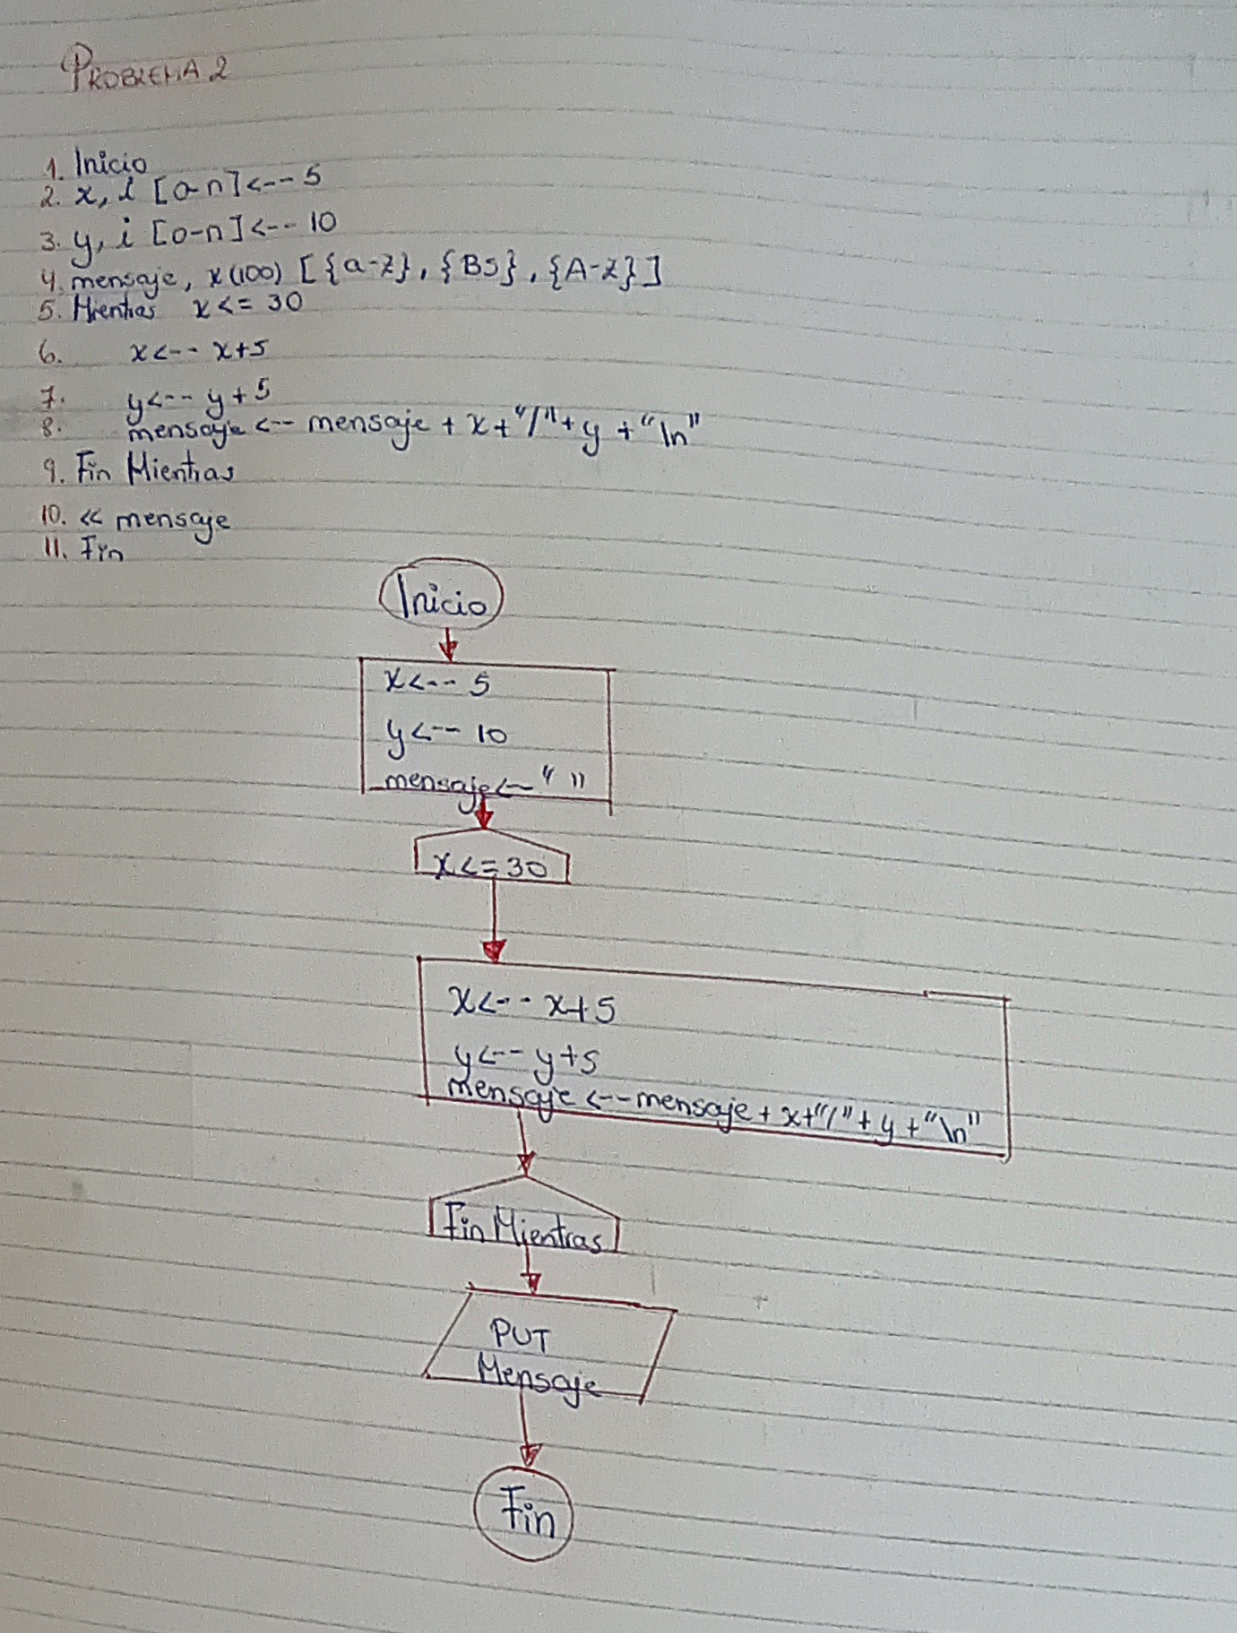 PROBLEMA 2
1. Inicio
2. x, i [0-n] <-- 5
3. y, i [0-n] <-- 10
4. mensaje, x(100) [{a-z}, {BS}, {A-Z}]
5. Mientras x <= 30
6. x <-- x+5
7. y <-- y+5
8. mensaje <-- mensaje + x + "/" + y + "\n"
9. Fin Mientras
10. << mensaje
11. Fin
Inicio
x <-- 5
y <-- 10
mensaje <-- " "
x <= 30
x <-- x+5
y <-- y+5
mensaje <-- mensaje + x + "/" + y + "\n"
Fin Mientras
PUT
Mensaje
Fin